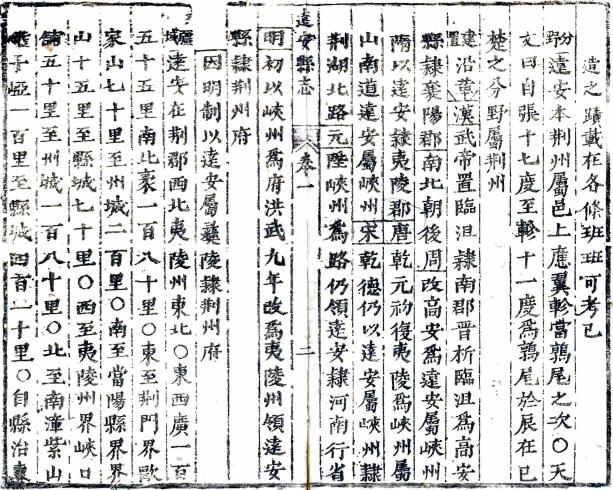 造之蹟載在各條班班可考已
分野遠安本荆州屬邑上應翼軫當鶉尾之次〇天
文曰自張十七度至軫十一度爲鶉尾於辰在巳
楚之分野屬荆州
建置沿革漢武帝置臨沮隸南郡晋析臨沮爲高安
縣隸襄陽郡南北朝後周改高安爲遠安屬峽州
隋以遠安隸夷陵郡唐乾元初復夷陵爲峽州屬
山南道遠安屬峽州宋乾德仍以遠安屬峽州隸
荆湖北路元陞峽州爲路仍領遠安隸河南行省
遠安縣志 卷一 二
明初以峽州爲府洪武九年改爲夷陵州領遠安
縣隸荆州府
國朝因明制以遠安屬夷陵隸荆州府
疆域遠安在荆郡西北夷陵州東北〇東西廣一百
五十五里南北袤一百八十里〇東至荆門界歐
家山七十里至州城二百里〇南至當陽縣界界
山十五里至縣城七十里〇西至夷陵州界峽口
舖五十里至州城一百八十里〇北至南漳紫山
子啞一百里至縣城四百一十里〇自縣治東